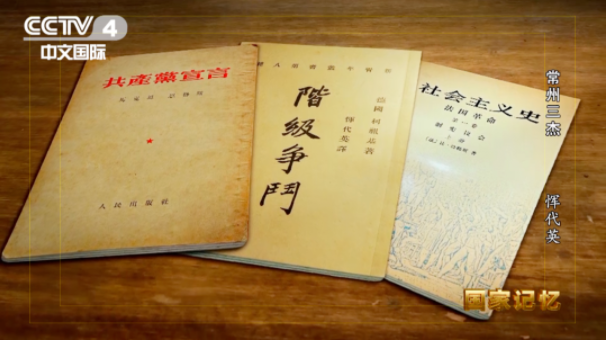 CCTV 4
中文国际
共產黨宣言
馬克思 恩格斯
人民出版社
階級爭鬥
德國 柯祖基著
惲代英譯
社会主义史
法国革命
第一卷
制宪议会
上册
常州三杰 恽代英
国家记忆